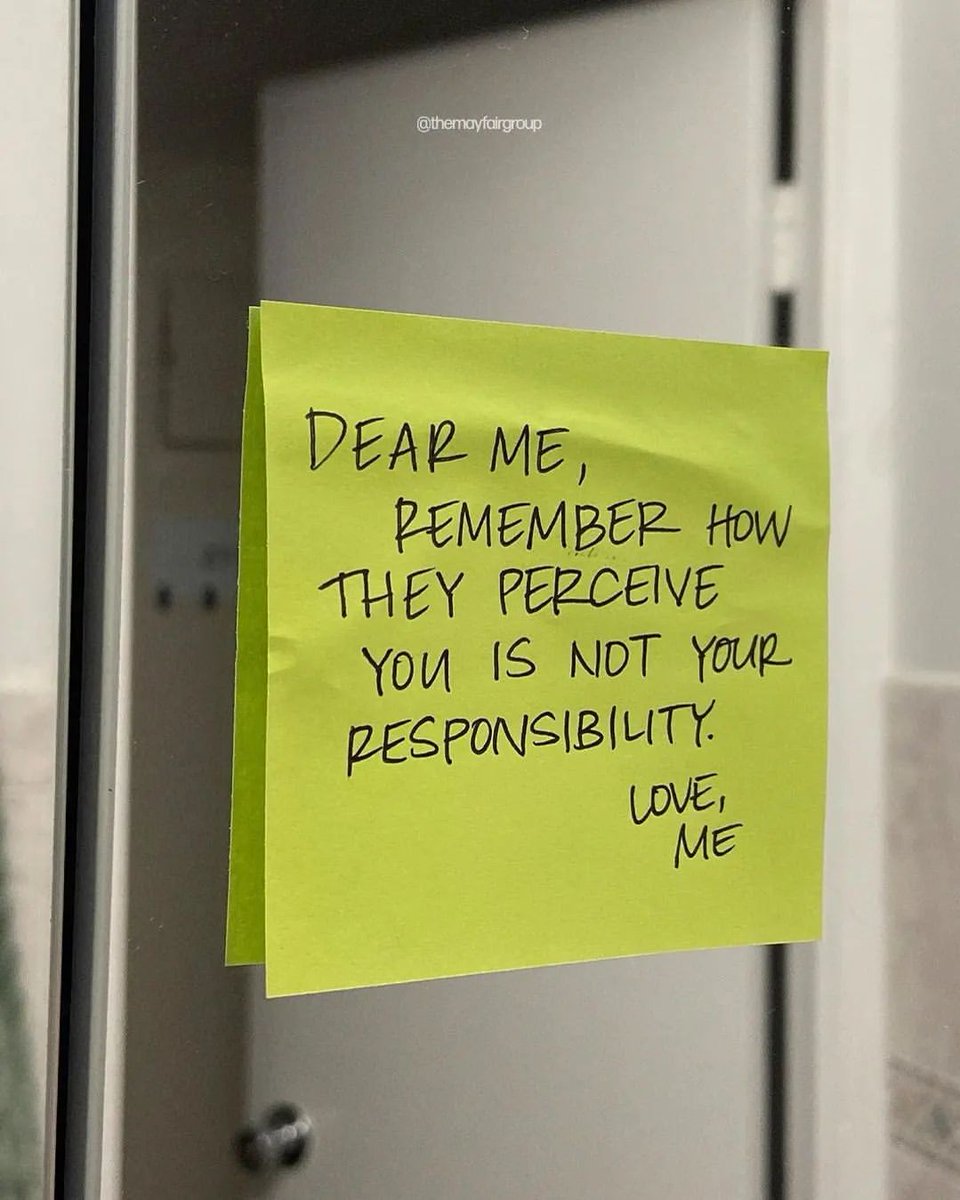 @themayfairgroup
DEAR ME,
REMEMBER HOW
THEY PERCEIVE
YOU IS NOT YOUR
RESPONSIBILITY.
LOVE,
ME